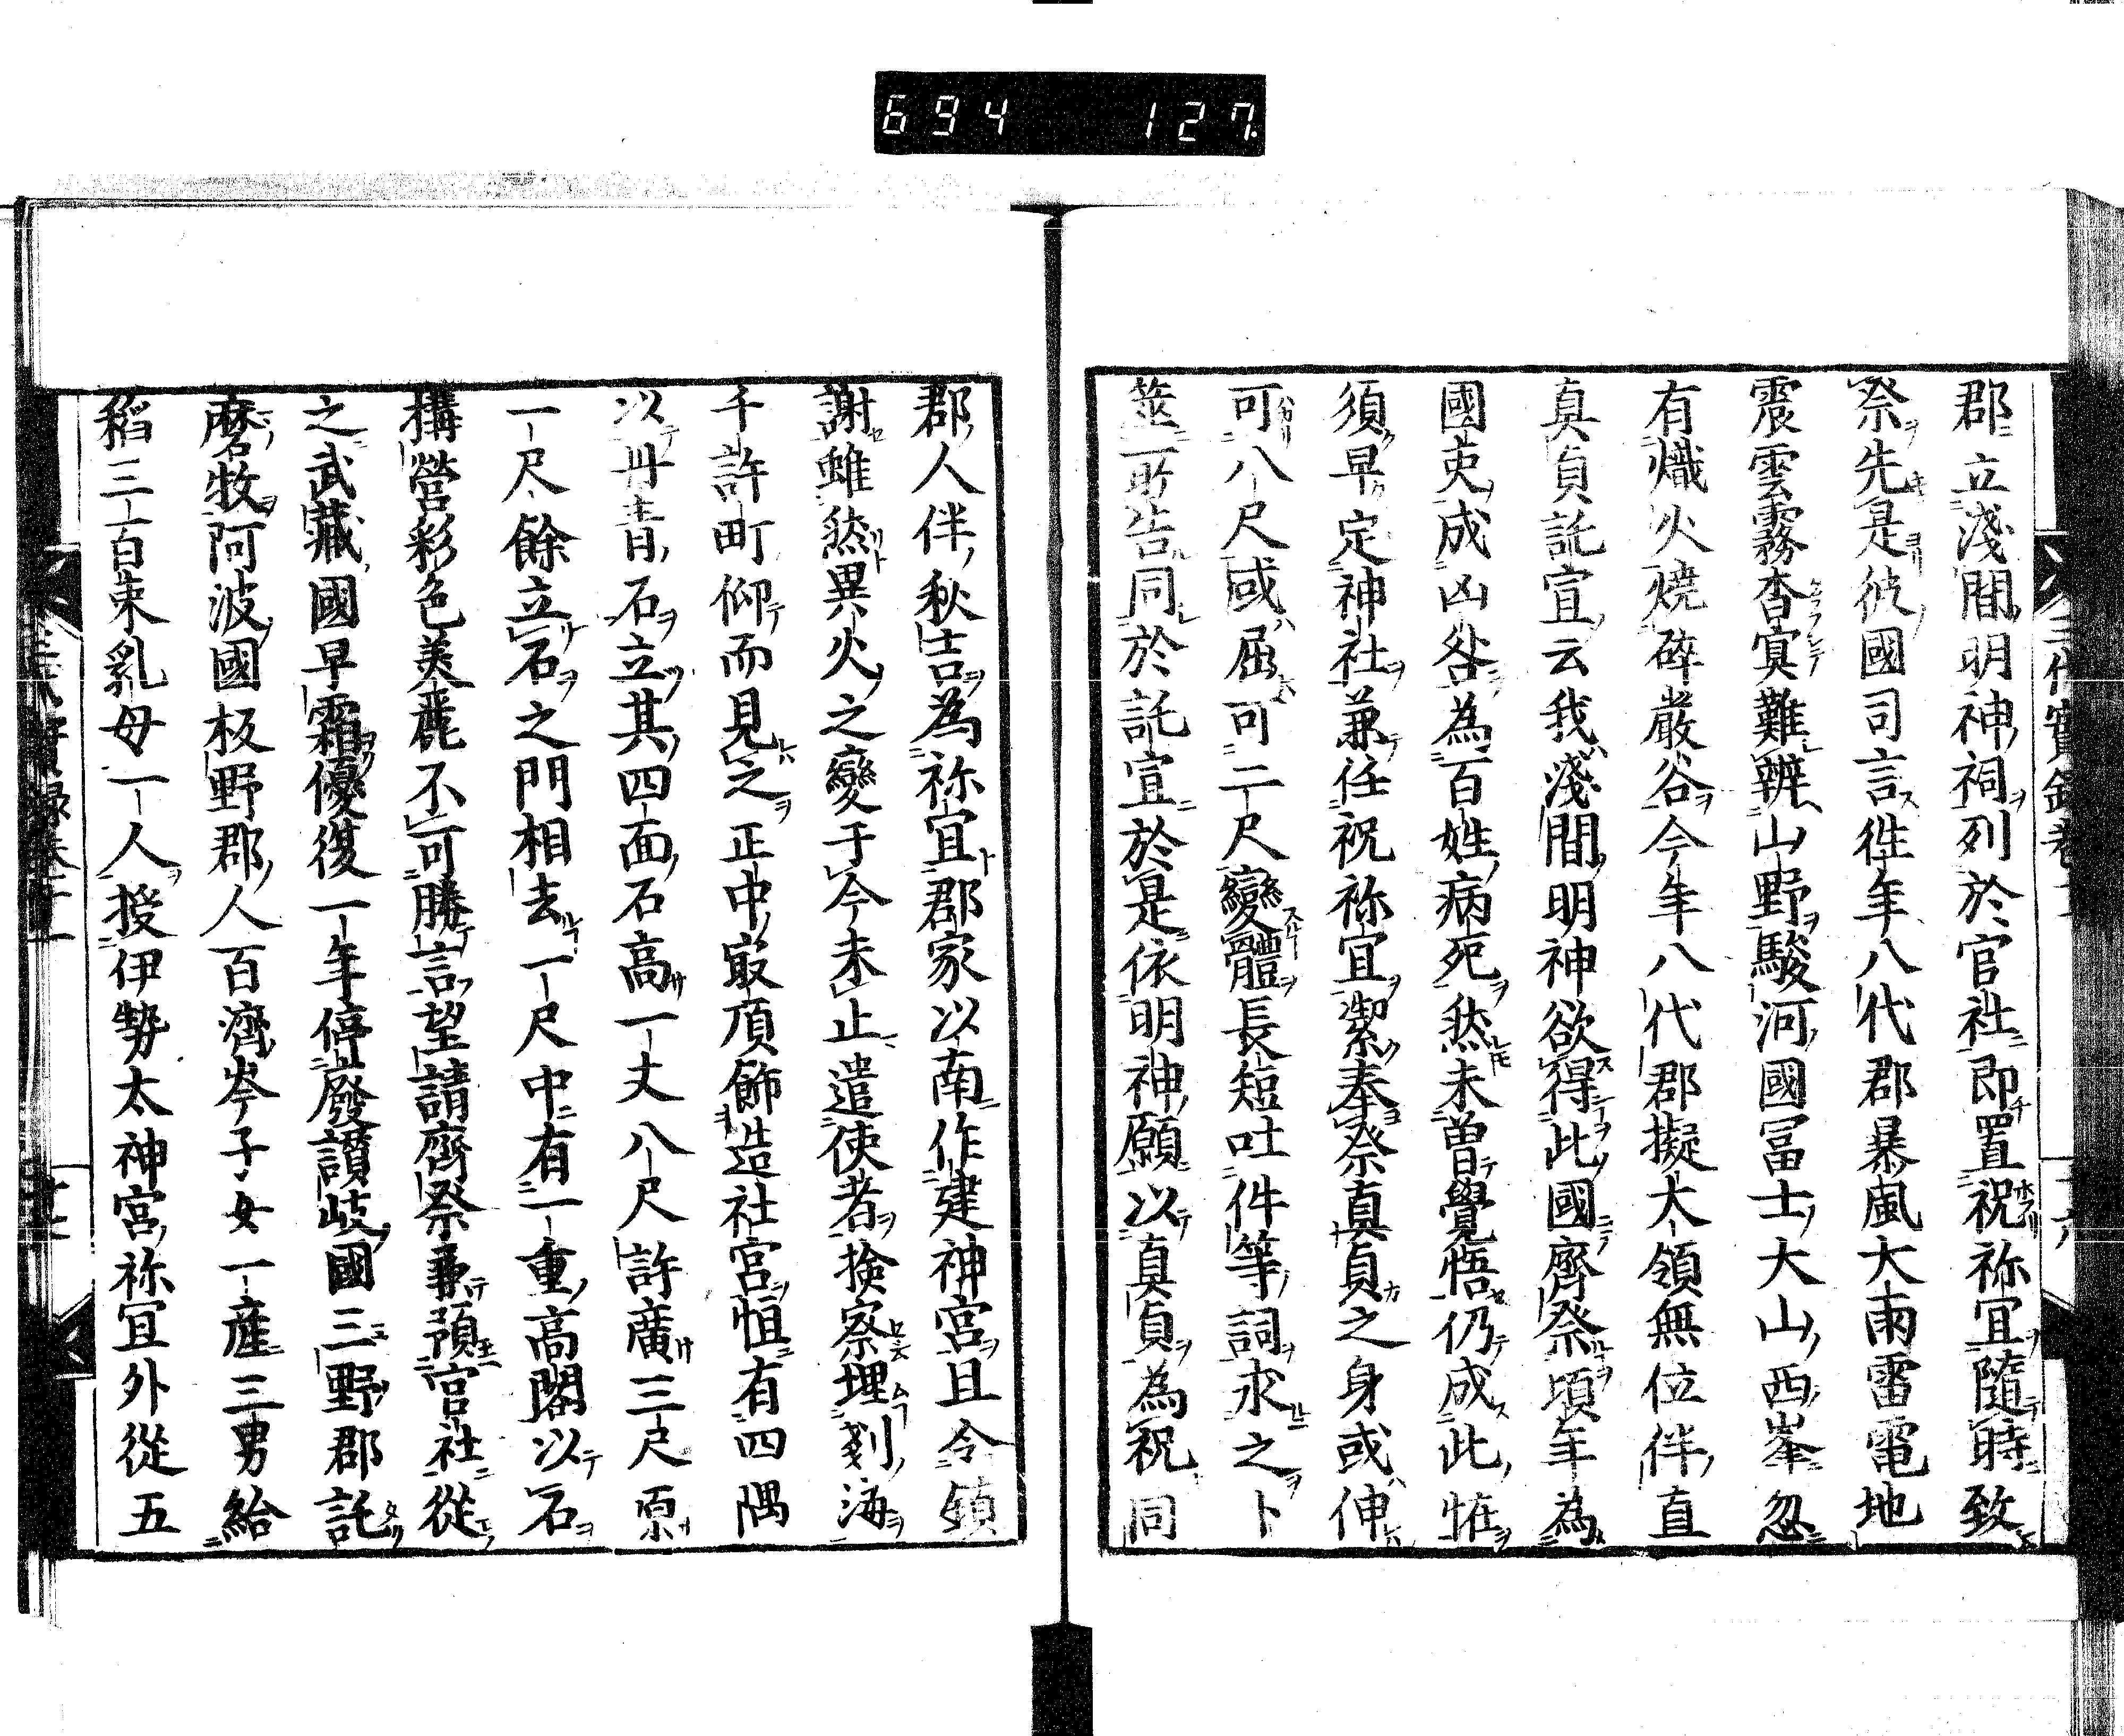 694 127
郡立淺間明神祠列於官社即置祝祢冝隨時致
祭先是彼國司言徃年八代郡暴風大雨雷電地
震雲霧杳冥難辨山野駿河國冨士大山西峯忽
有熾火燒碎巖谷今年八代郡擬大領無位伴直
真貞託宣云我淺間明神欲得此國齊祭頃年為
國吏成凶咎為百姓病死然未曽覺悟仍成此恠
須早定神社兼任祝祢冝潔奉祭真貞之身或伸
可八尺或屈可二尺變體長短吐件等詞求之卜
筮所告同於託宣於是依明神願以真貞為祝同
郡人伴秋吉為祢冝郡家以南作建神宮且令鎮
謝雖然異火之變于今未止遣使者撿察埋剗海
千許町仰而見之正中㝡頂飾造社宮恒有四隅
以丹青石立其四面石高一丈八尺許廣三尺原
一尺餘立石之門相去一尺中有一重高閣以石
構營彩色美麗不可勝言望請齊祭兼預官社從
之武藏國早霜優復一年停廢讃岐國三野郡託
磨牧阿波國板野郡人百濟岑子女一産三男給
稻三百束乳母一人授伊勢太神宮祢冝外從五